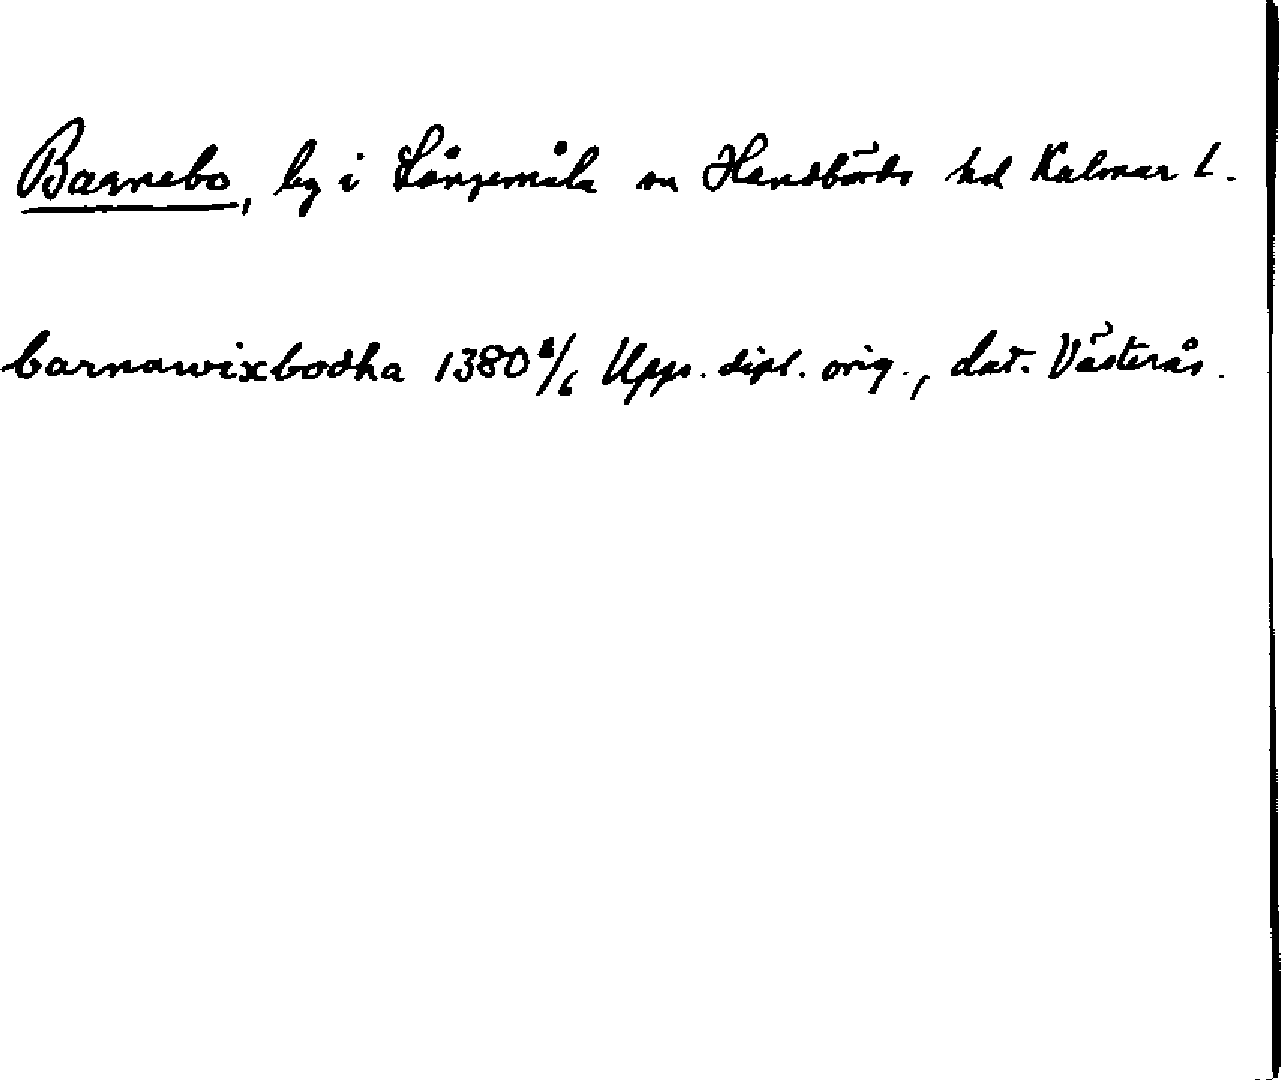 Barnebo, by i Långemåla sn Handbörds hd Kalmar l.
barnawixbodha 1380 6/6 Upps. dipl. orig., dat. Västerås.